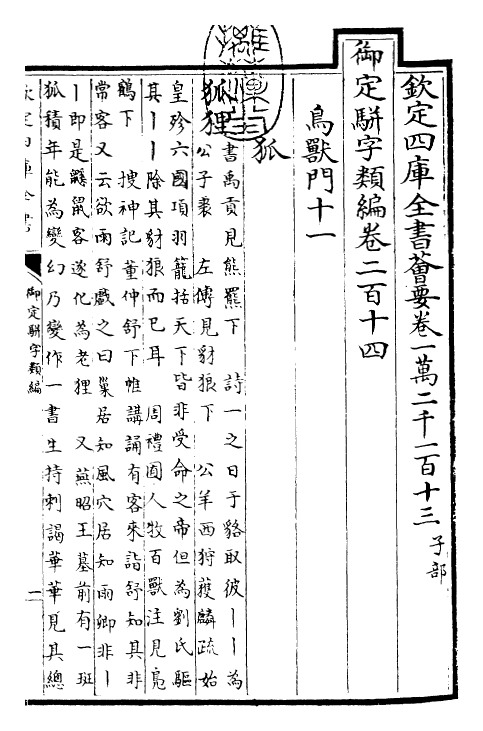 欽定四庫全書薈要卷一萬二千一百十三 子部
御定駢字類編卷二百十四
鳥獸門十一
狐
狐狸 書禹貢見熊羆下 詩一之日于貉取彼丨丨為
公子裘 左傳見豺狼下 公羊西狩獲麟疏始
皇殄六國項羽籠括天下皆非受命之帝但為劉氏驅
其丨丨除其豺狼而已耳 周禮囿人牧百獸注見鳧
鶴下 搜神記董仲舒下帷講誦有客來詣舒知其非
常客又云欲雨舒戲之曰巢居知風穴居知雨卿非丨
丨即是鼷鼠客遂化為老狸 又燕昭王墓前有一班
狐積年能為變幻乃變作一書生持刺謁華華見其總
欽定四庫全書
御定駢字類編
一